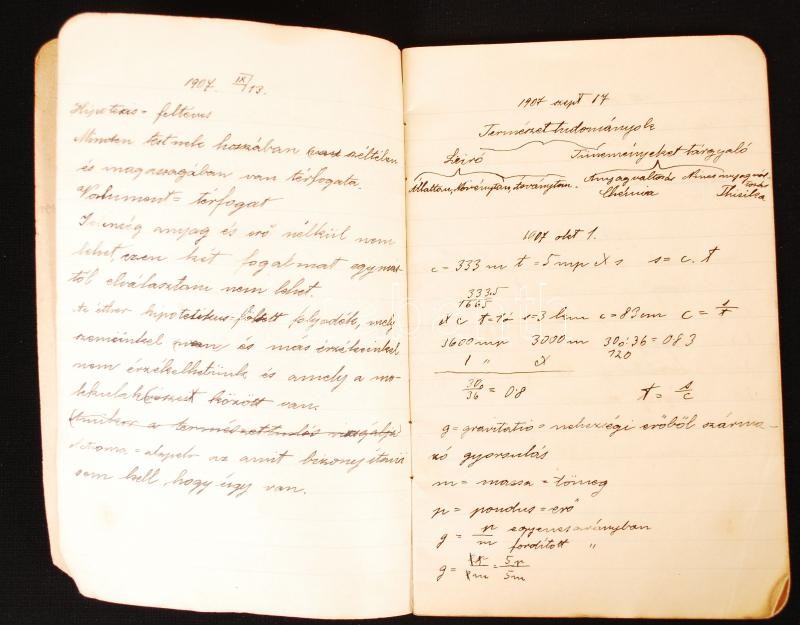 1907. IX/13.
Hipotezis = feltevés
Minden testnek hosszában széltében
és magasságában van térfogata.
Volument = térfogat
anyag és erő nélkül nem
lehet, ezen két fogalmat egymás-
tól elválasztani nem lehet.
Az éther hipotetikus folyadék, mely
szemeinkel és más érzékeinkel
nem érzékelhetünk és amely a mo-
lekulák között van.
Amikor a természettudós vizsgálja
Axioma = alapelv az amit bizonyitani
sem kell, hogy úgy van.
1907 szept 17
Természettudományok
Leiró Tüneményeket tárgyaló
Állattan, Növénytan, Ásványtan. Anyagváltozás Nincs anyagvál-
tozás
Chémia Thisika
1907 okt 1.
c = 333 m t = 5 mp X s s = c. t
333.5
1665
X c t = 1ó s = 3 km c = 83 cm c = s/t
3600 mp 3000 m 300:36 = 083
1 " X 120
300/36 = 0.8 t = s/c
g = gravitatió = nehézségi erőből szárma-
zó gyorsulás
m = massa = tömeg
p = pondus = erő
g = p/m egyenes arányban
forditott "
g = p/m = 5p/5m